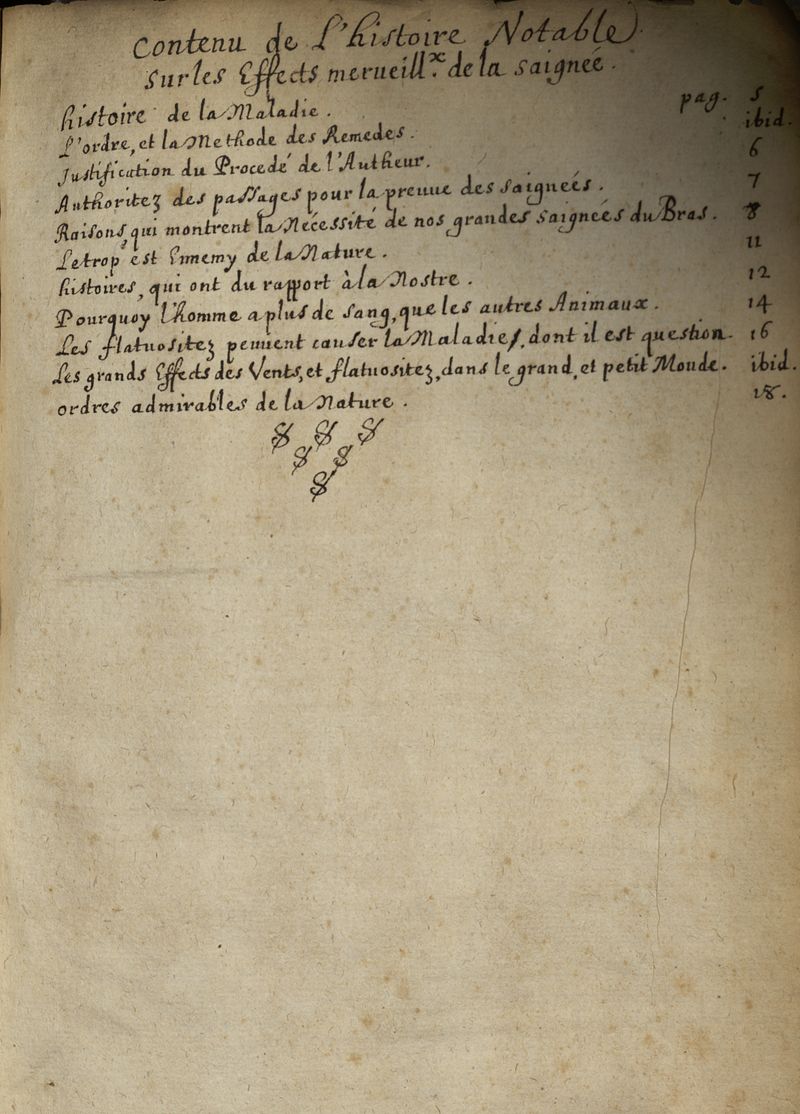 Contenu de l'histoire Notable
Sur les Effects merueill.x de la saignée.
histoire de la Maladie. pag. 5
L'ordre, et la Methode des Remedes. ibid.
Justification du Procedé de l'Autheur. 6
Authoritez des passages pour la preuue des saignées. 7
Raisons qui montrent la Nécessité de nos grandes saignées du Bras. 8
Le trop est Ennemy de la Nature. 11
histoires, qui ont du rapport à la Nostre. 12
Pourquoy l'homme a plus de sang, que les autres Animaux. 14
Les flatuositez peuuent causer la Maladie, dont il est question. 16
Les grands Effects des Vents, et flatuositez, dans le grand, et petit Monde. ibid.
ordres admirables de la Nature. 18.